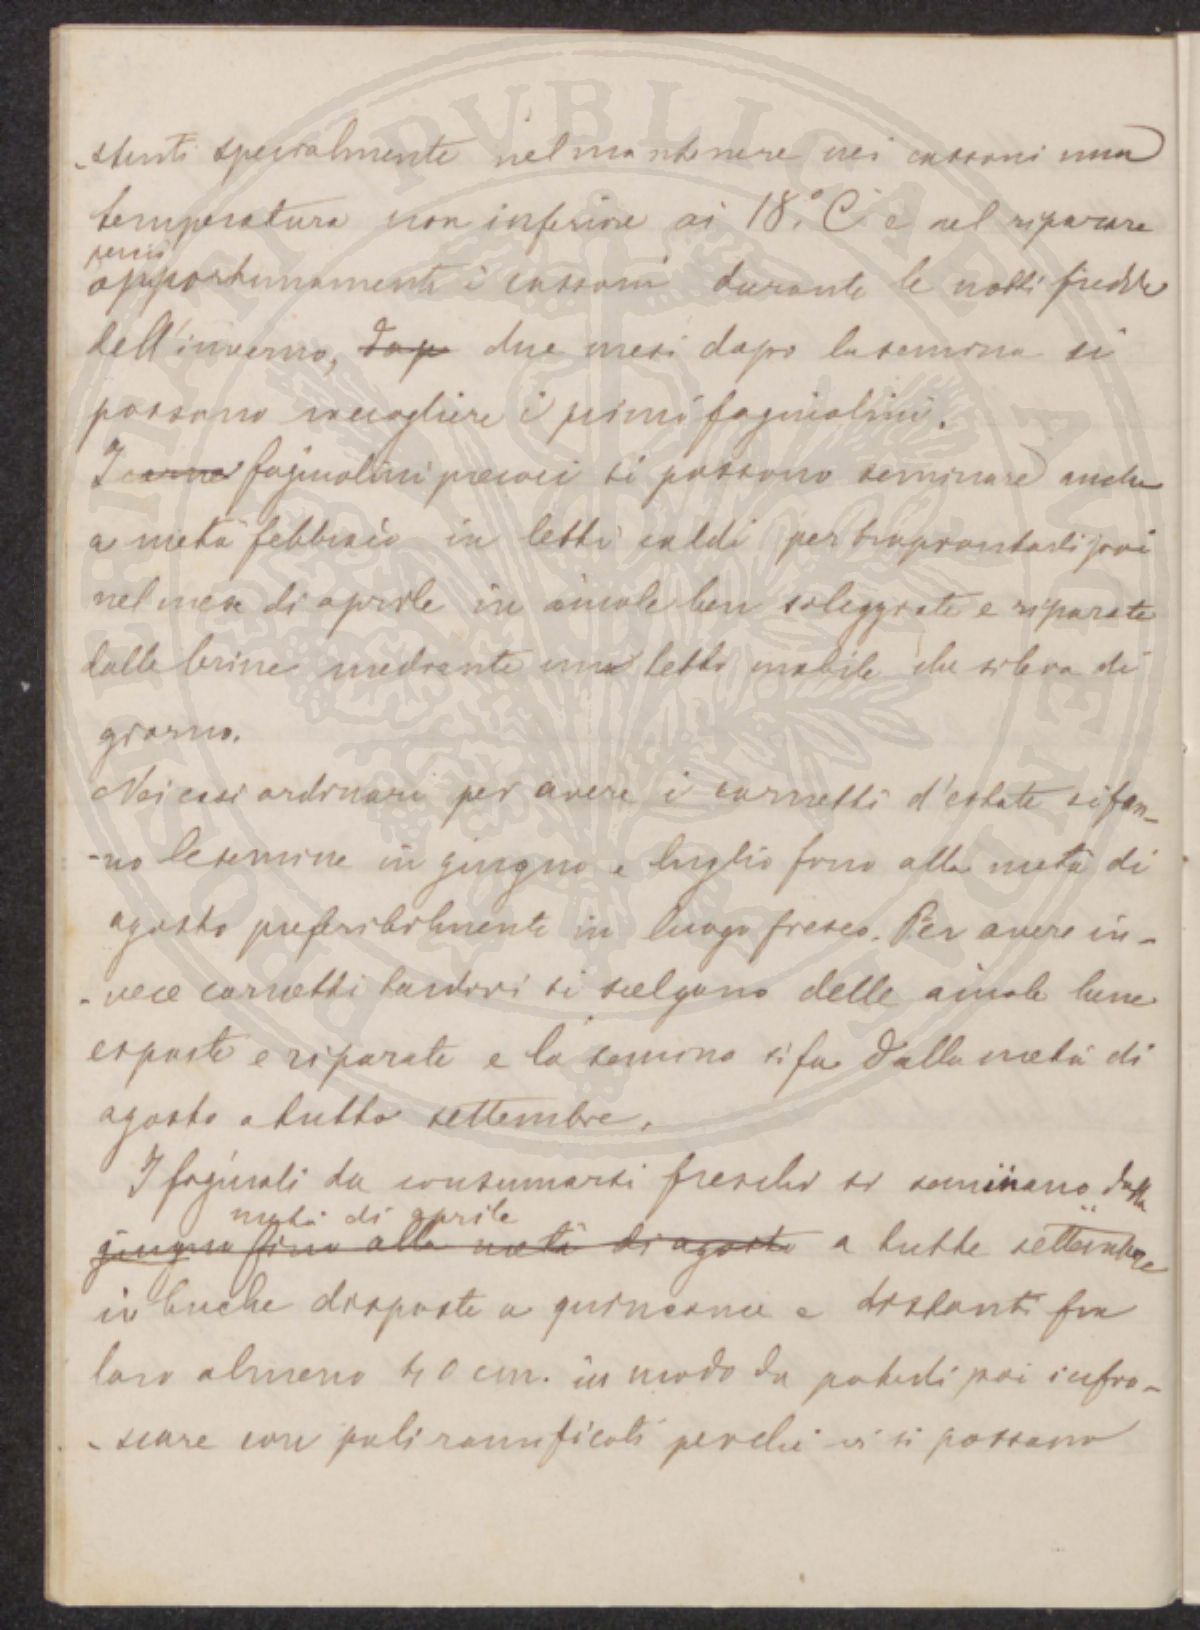 -stenti specialmente nel mantenere nei cassoni una
temperatura non inferiore ai 18.° C e nel riparare
opportunamente i cassoni durante le notti fredde
dell'inverno, dop due mesi dopo la semina si
possono raccogliere i primi fagiuolini.
I fagiuolini precoci si possono seminare anche
a metà febbraio in letti caldi per trapiantarli poi
nel mese di aprile in aiuole ben soleggiate e riparate
dalle brine mediante un tetto mobile che si leva di
giorno.
Nei casi ordinari per avere i cornetti d'estate si fan-
-no le semine in giugno e luglio fino alla metà di
agosto preferibilmente in luogo fresco. Per avere in-
-vece cornetti tardivi si scelgono delle aiuole bene
esposte e riparate e la semina si fa dalla metà di
agosto a tutto settembre.
I fagiuoli da consumarsi freschi si seminano dalla
metà di aprile
giugno fino alla metà di agosto a tutto settembre
in buche disposte a quinconce e distanti fra
loro almeno 40 cm. in modo da poterli poi infra-
-scare con pali ramificati perchè vi si possano
PVBLICAE